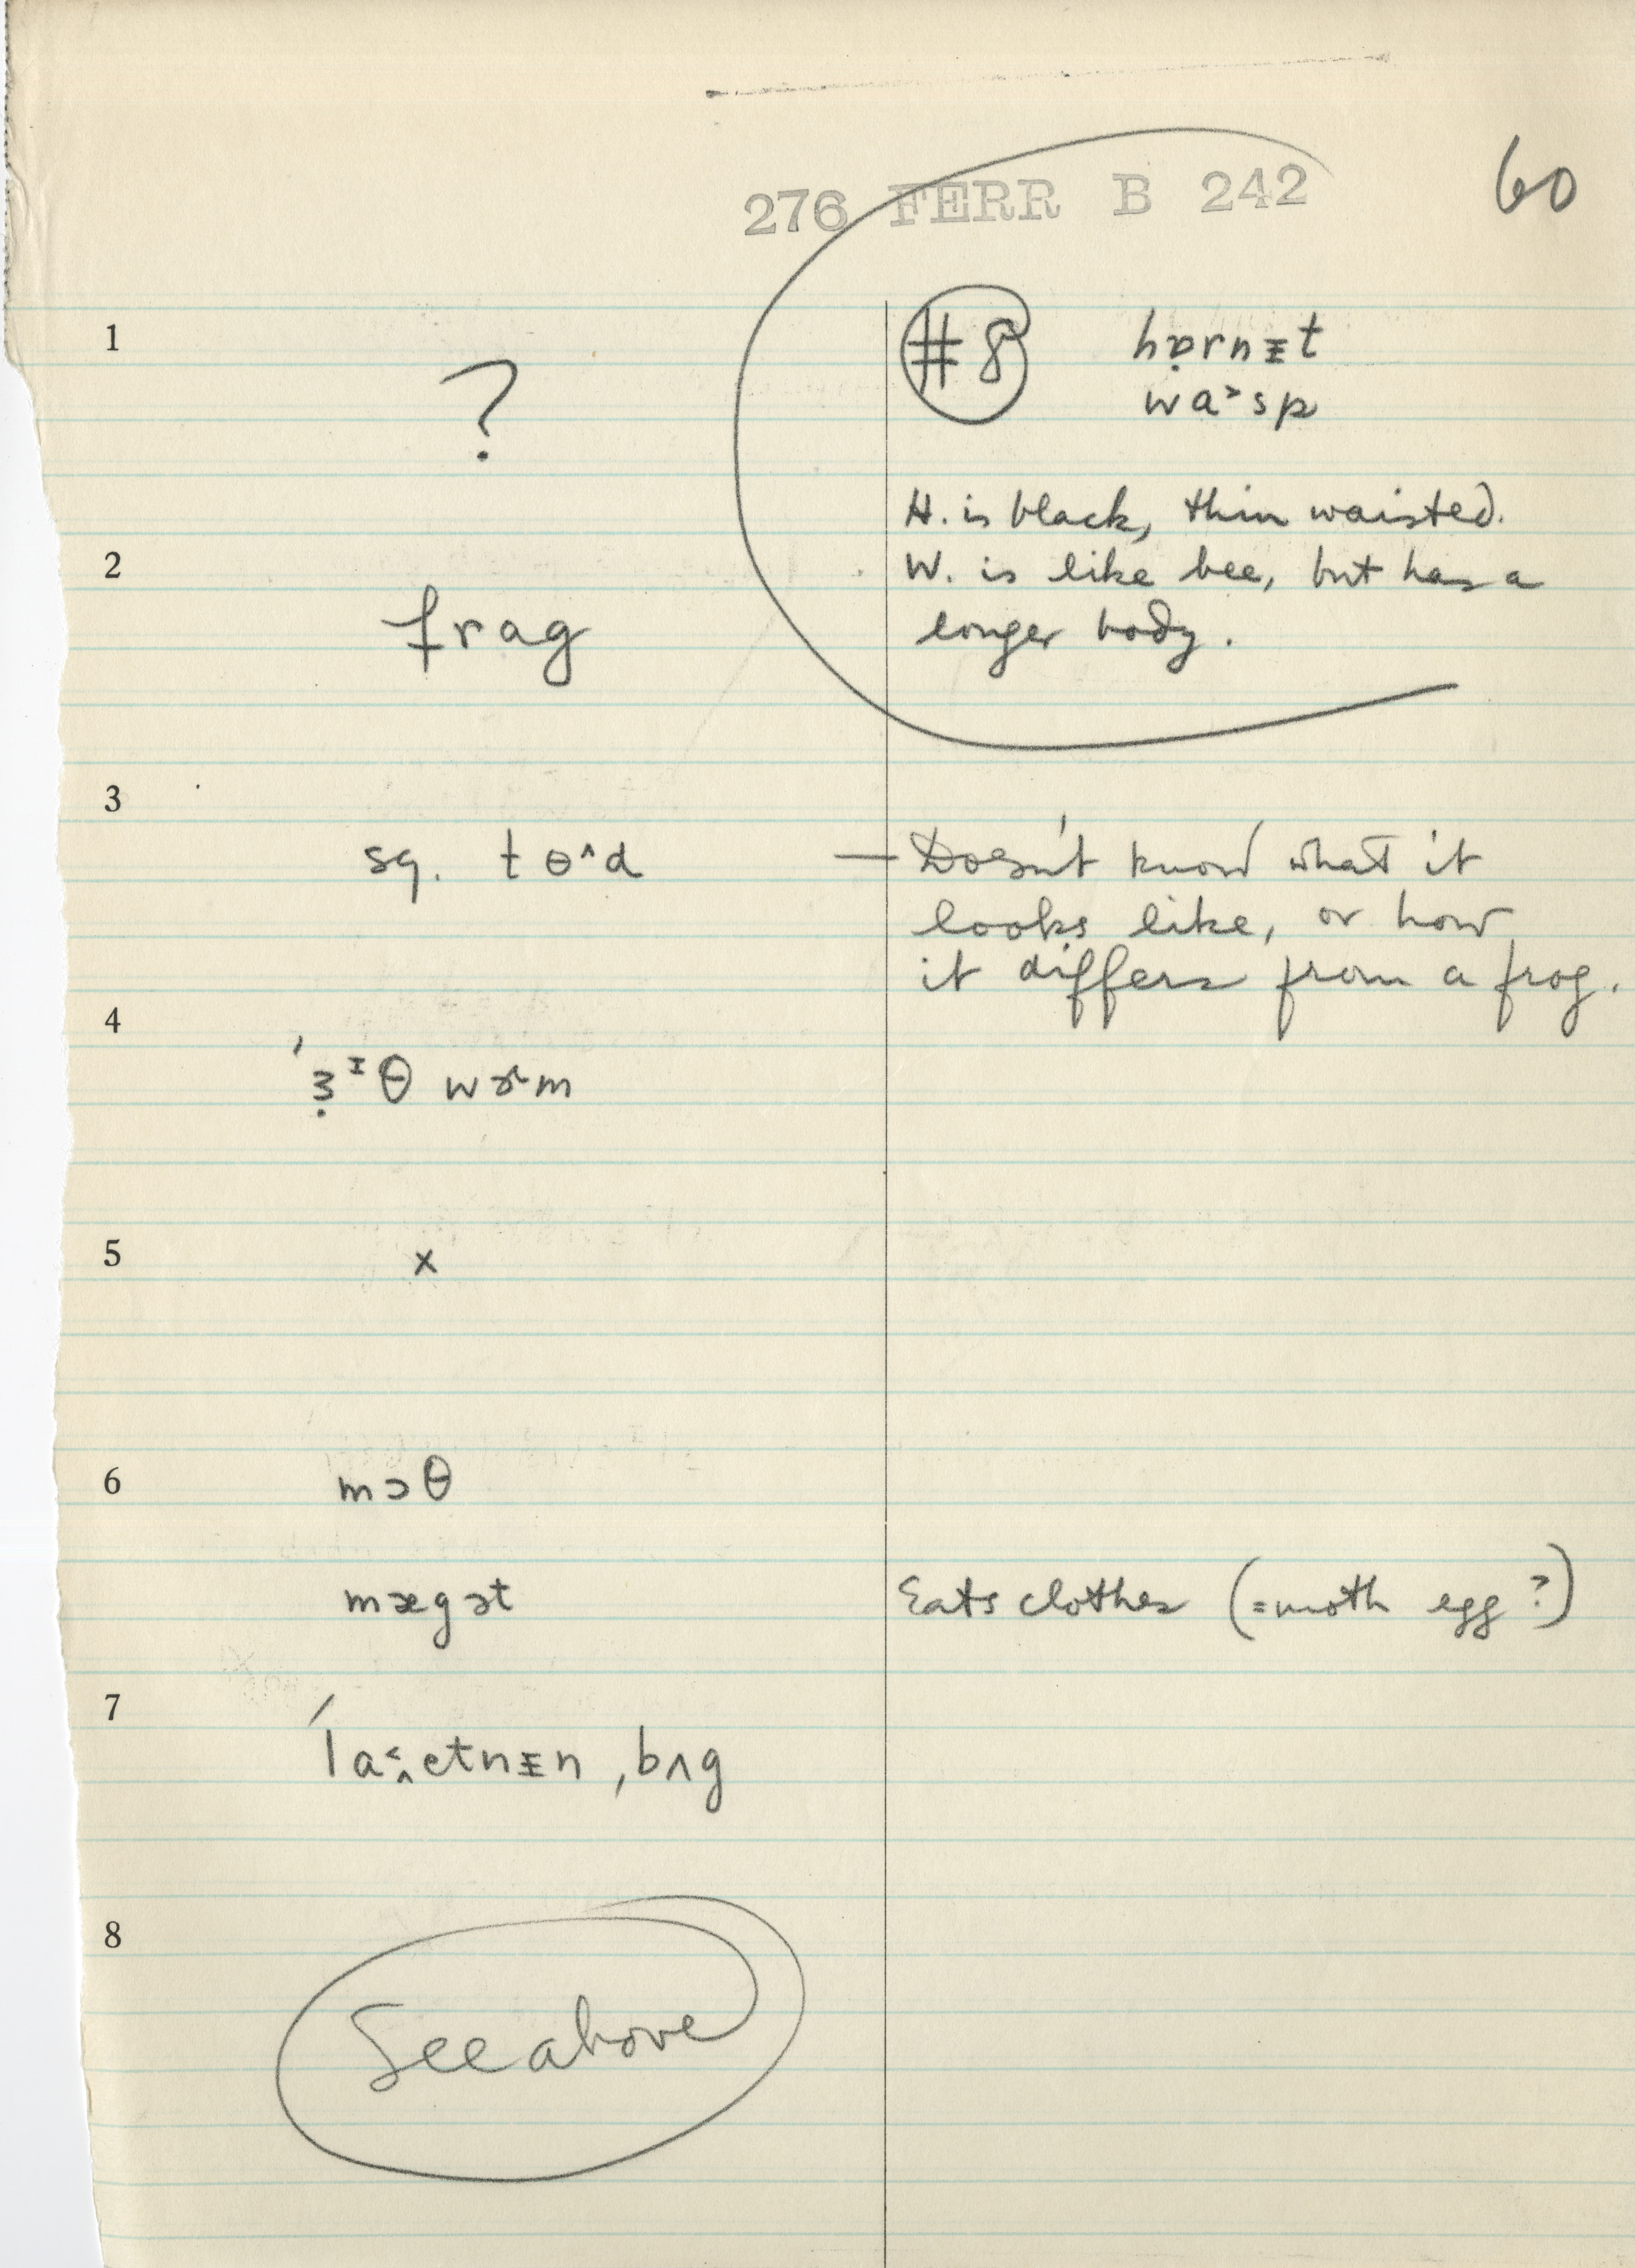 276 FERR B 242
60
1
?
#8 hɒ̣rnᵻt
wa˃sp
H. is black, thin waisted.
2
W. is like bee, but has a
frag
longer body.
3
sq. tɵ^d — Doesn't know what it
looks like, or how
it differs from a frog.
4
'ɜ̣ᶦθ wɚm
5 x
6 mɔθ
mægət Eats clothes (=moth egg?)
7
'la˂̭etnᵻn ˌbʌg
8
See above